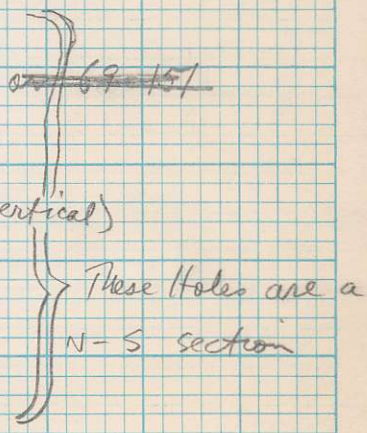 69-151
ertical)
These Holes are a
N-S section